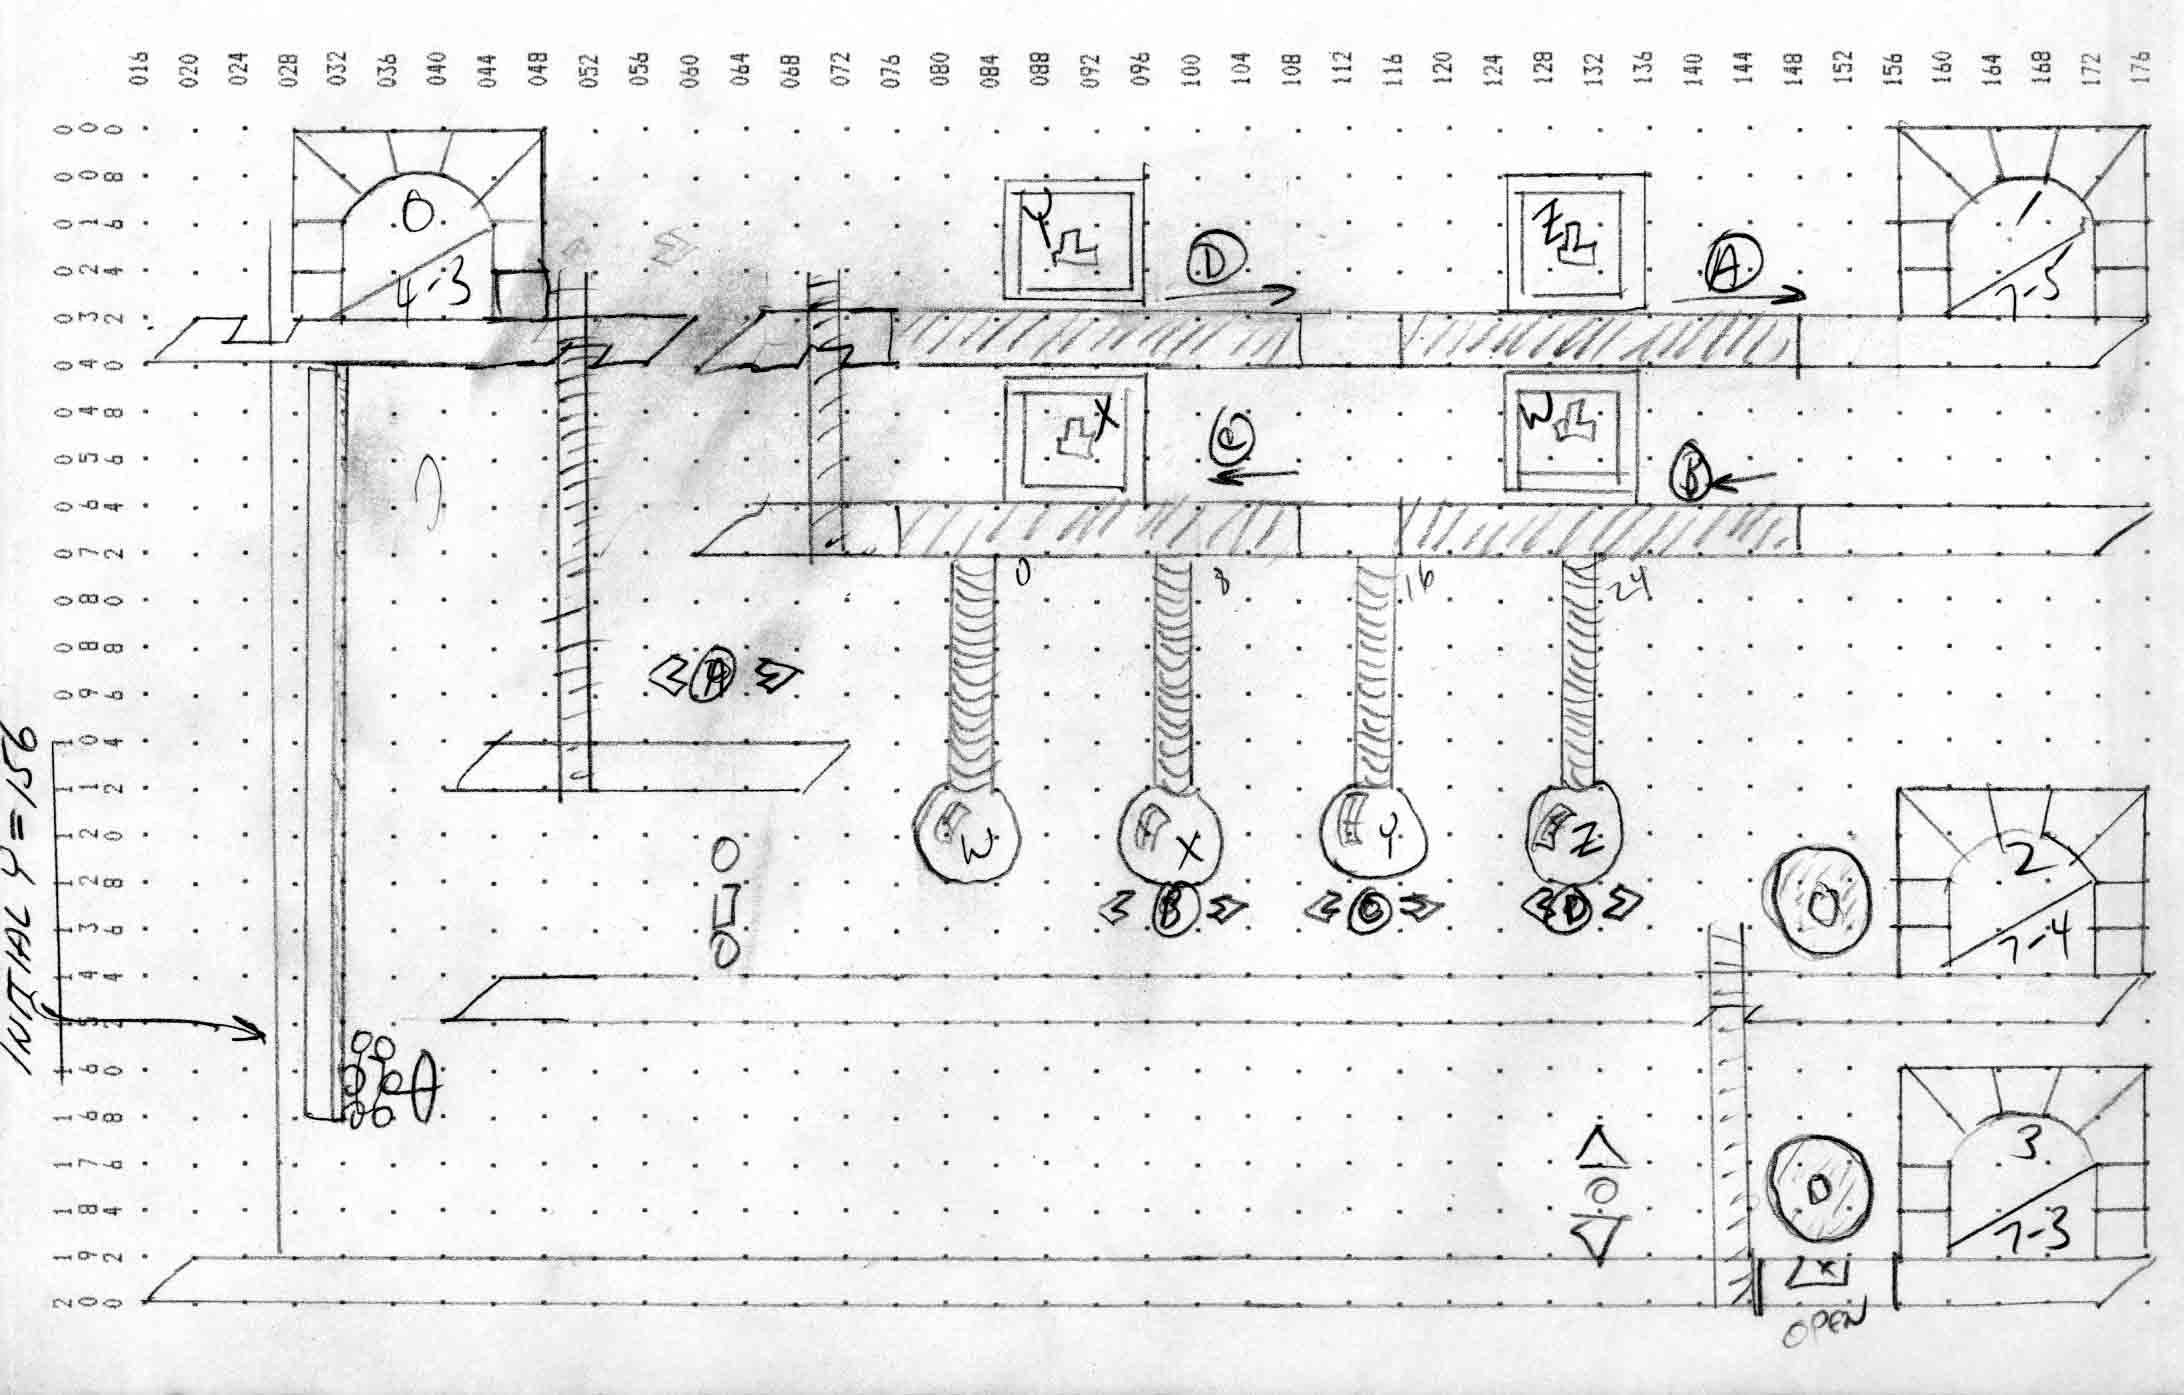 016 020 024 028 032 036 040 044 048 052 056 060 064 068 072 076 080 084 088 092 096 100 104 108 112 116 120 124 128 132 136 140 144 148 152 156 160 164 168 172 176
000
008
016
024
032
040
048
056
064
072
080
088
096
104
112
120
128
136
144
152
160
168
176
184
192
200
0
4-3
Y
D
Z
A
1
7-5
X
C
W
B
0 8 16 24
A
INITIAL Y=156
W X Y Z
B C D
O
2
7-4
O
3
7-3
X
OPEN